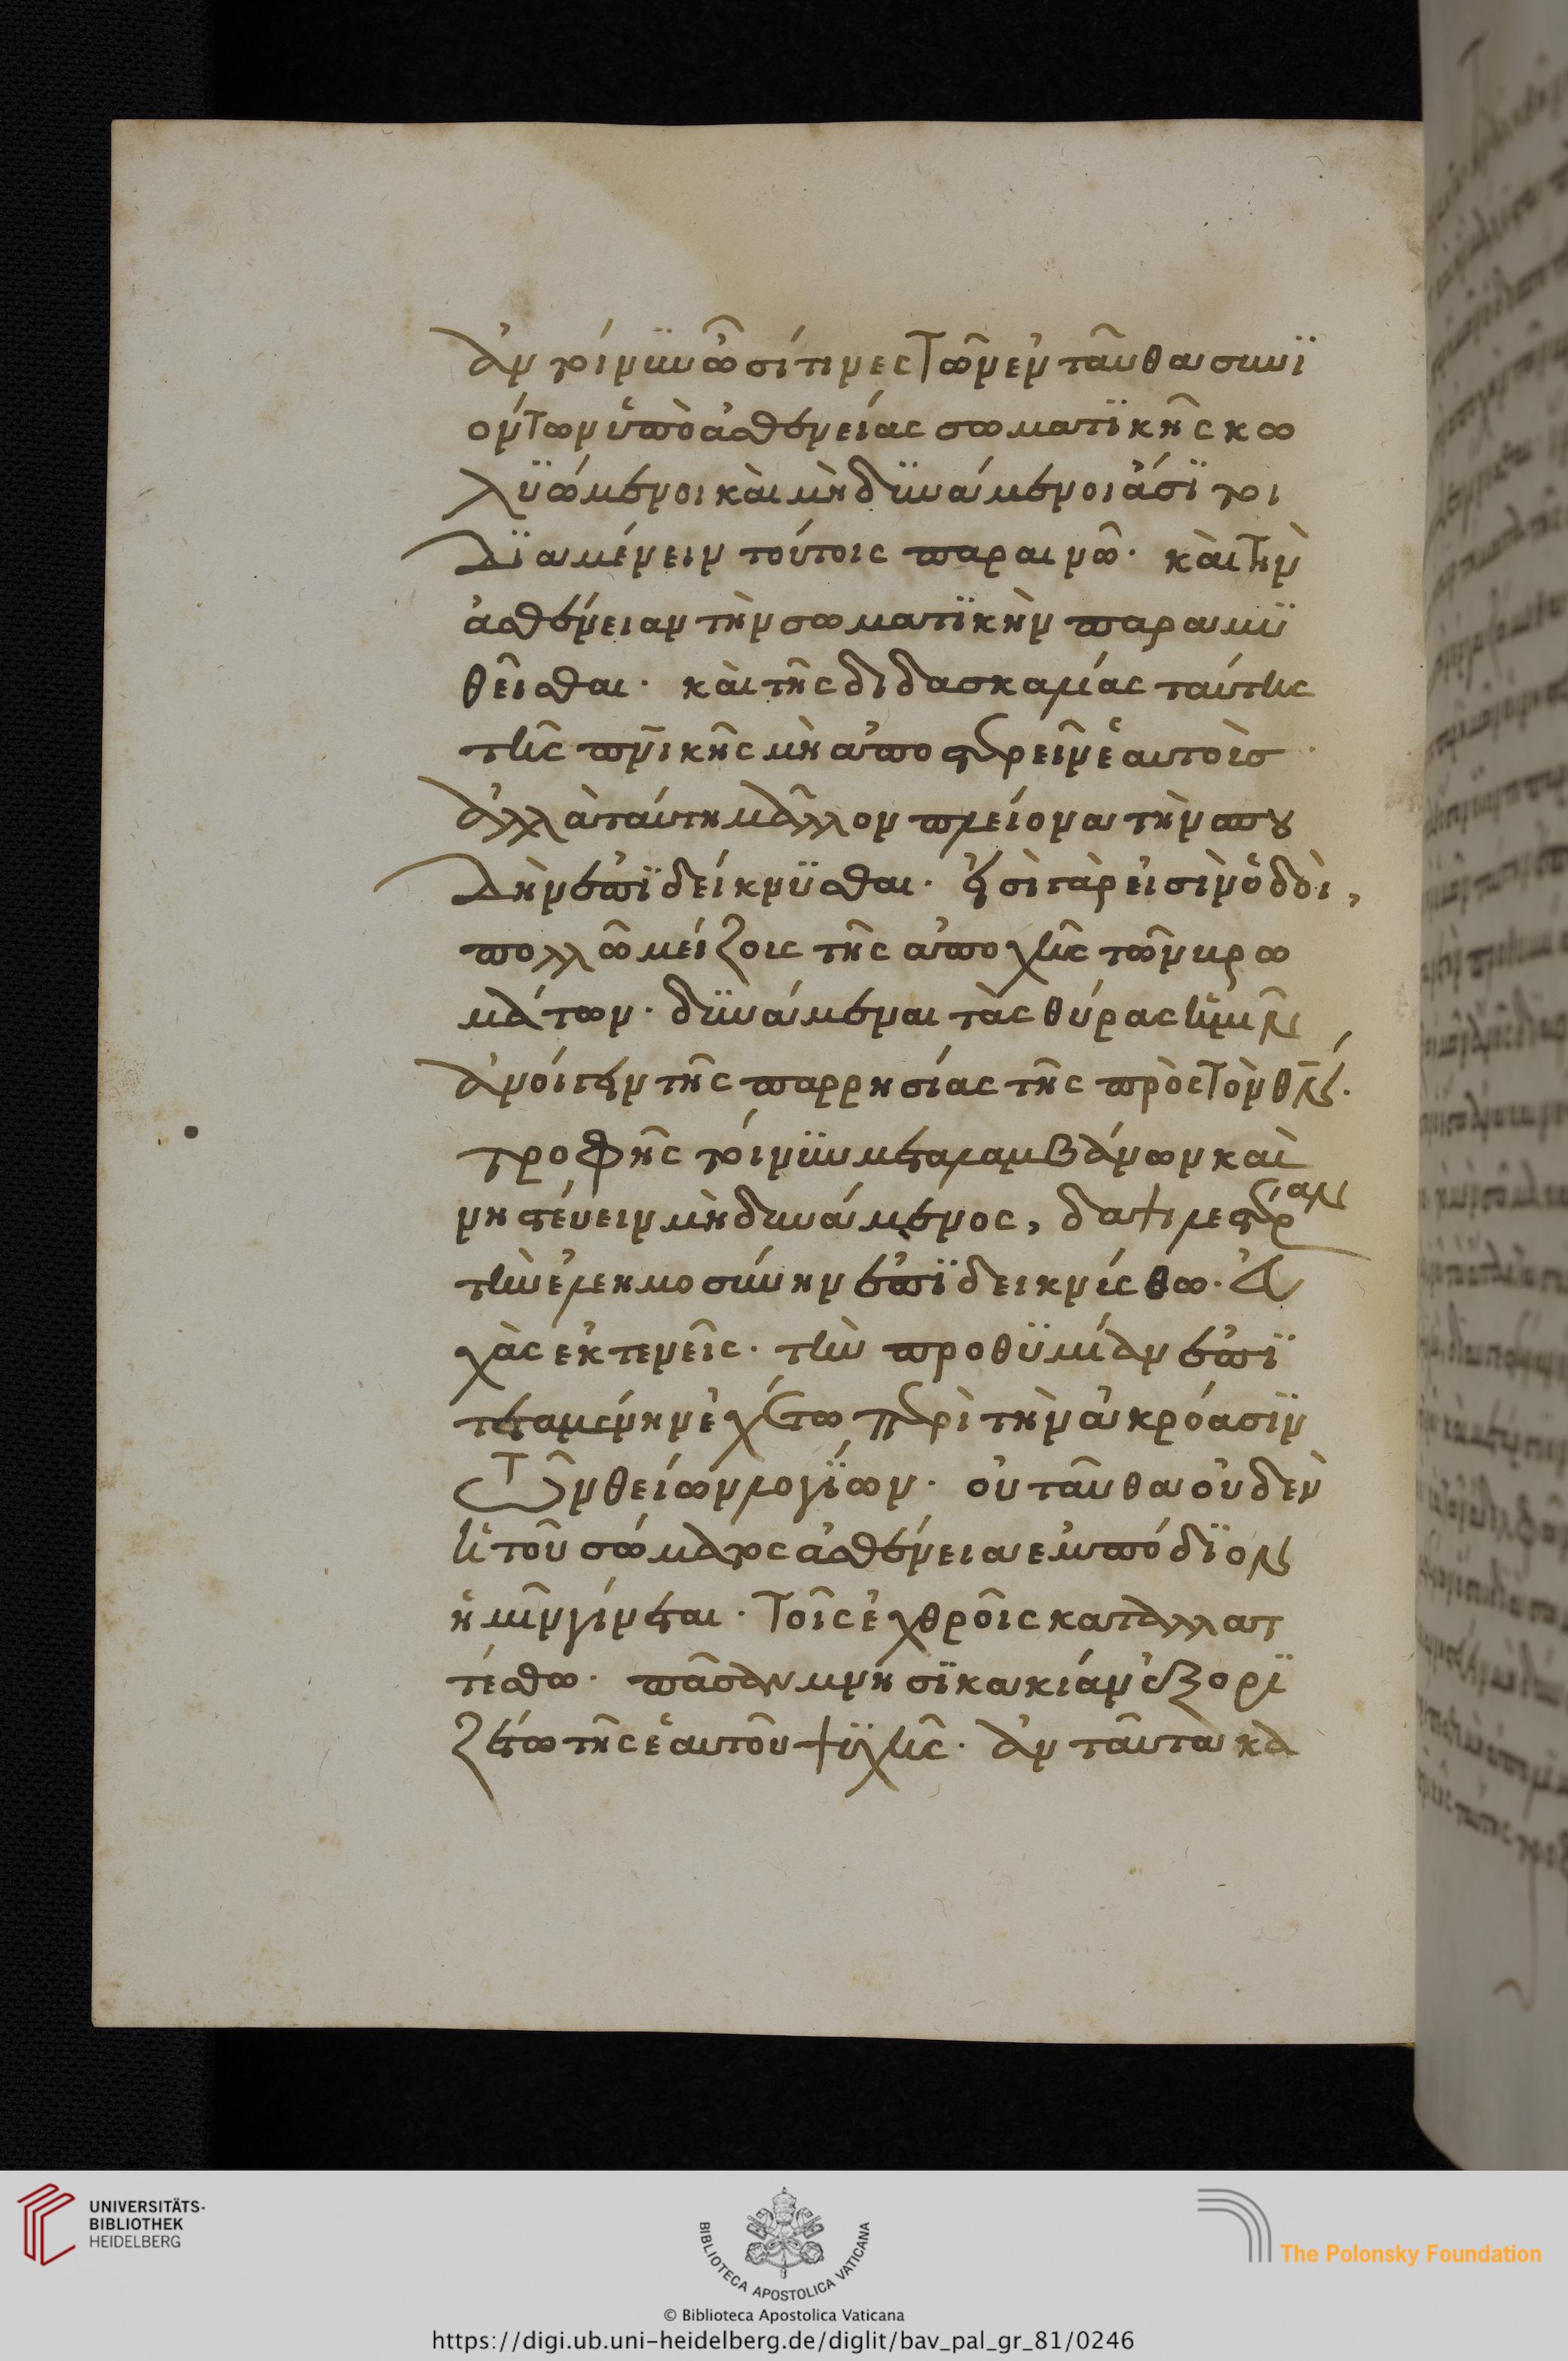 ἂν τοίνυν ὦσί τινες τῶν ἐνταῦθα συνϊ
όντων ὑπὸ ἀσθενείας σωματϊκῆς κω
λϋώμενοι καὶ μὴ δϋνάμενοι ἄσϊτοι
δϊαμένειν τούτοις παραινῶ· καὶ τὴν
ἀσθένειαν τὴν σωματϊκὴν παραμϋ
θεῖσθαι· καὶ τῆς διδασκαλίας ταύτης
τῆς πν̅ικῆς μὴ ἀποστερεῖν ἑαυτοὺσ·
ἀλλὰ ταύτη μᾶλλον πλείονα τὴν σπου
δὴν ἐπϊδείκνϋσθαι· εἰσὶ γὰρ εἰσὶν ὁδοὶ,
πολλῶ μείζοις τῆς ἀποχῆς τῶν βρω
μάτων· δϋνάμεναι τὰς θύρας ἡμῖν
ἀνοίγειν τῆς παρρησίας τῆς πρὸς τὸν θν̅·
τροφῆς τοίνϋν μεταλαμβάνων καὶ
νηστεύειν μὴ δυνάμενος, δαψιλεστέραν
τὴν ἐλεημοσύνην ἐπϊδεικνίσθω· εὐ
χὰς ἐκτενεῖς· τὴν προθϋμίαν ἐπϊ
τεταμένην ἐχέτω περὶ τὴν ἀκρόασϊν
τῶν θείων λογΐων· οὐταῦθα οὐδὲν
ἡ τοῦ σώματος ἀσθένεια ἐμπόδϊον
ἡμῖν γίνεται· τοῖς ἐχθροῖς καταλλατ
τέσθω· πᾶσαν μνησϊκακίαν ἐξορϊ
ζέτω τῆς ἑαυτοῦ ψϋχῆς· ἂν ταῦτα κα
UNIVERSITÄTS-
BIBLIOTHEK
HEIDELBERG
BIBLIOTECA APOSTOLICA VATICANA
The Polonsky Foundation
© Biblioteca Apostolica Vaticana
https://digi.ub.uni-heidelberg.de/diglit/bav_pal_gr_81/0246